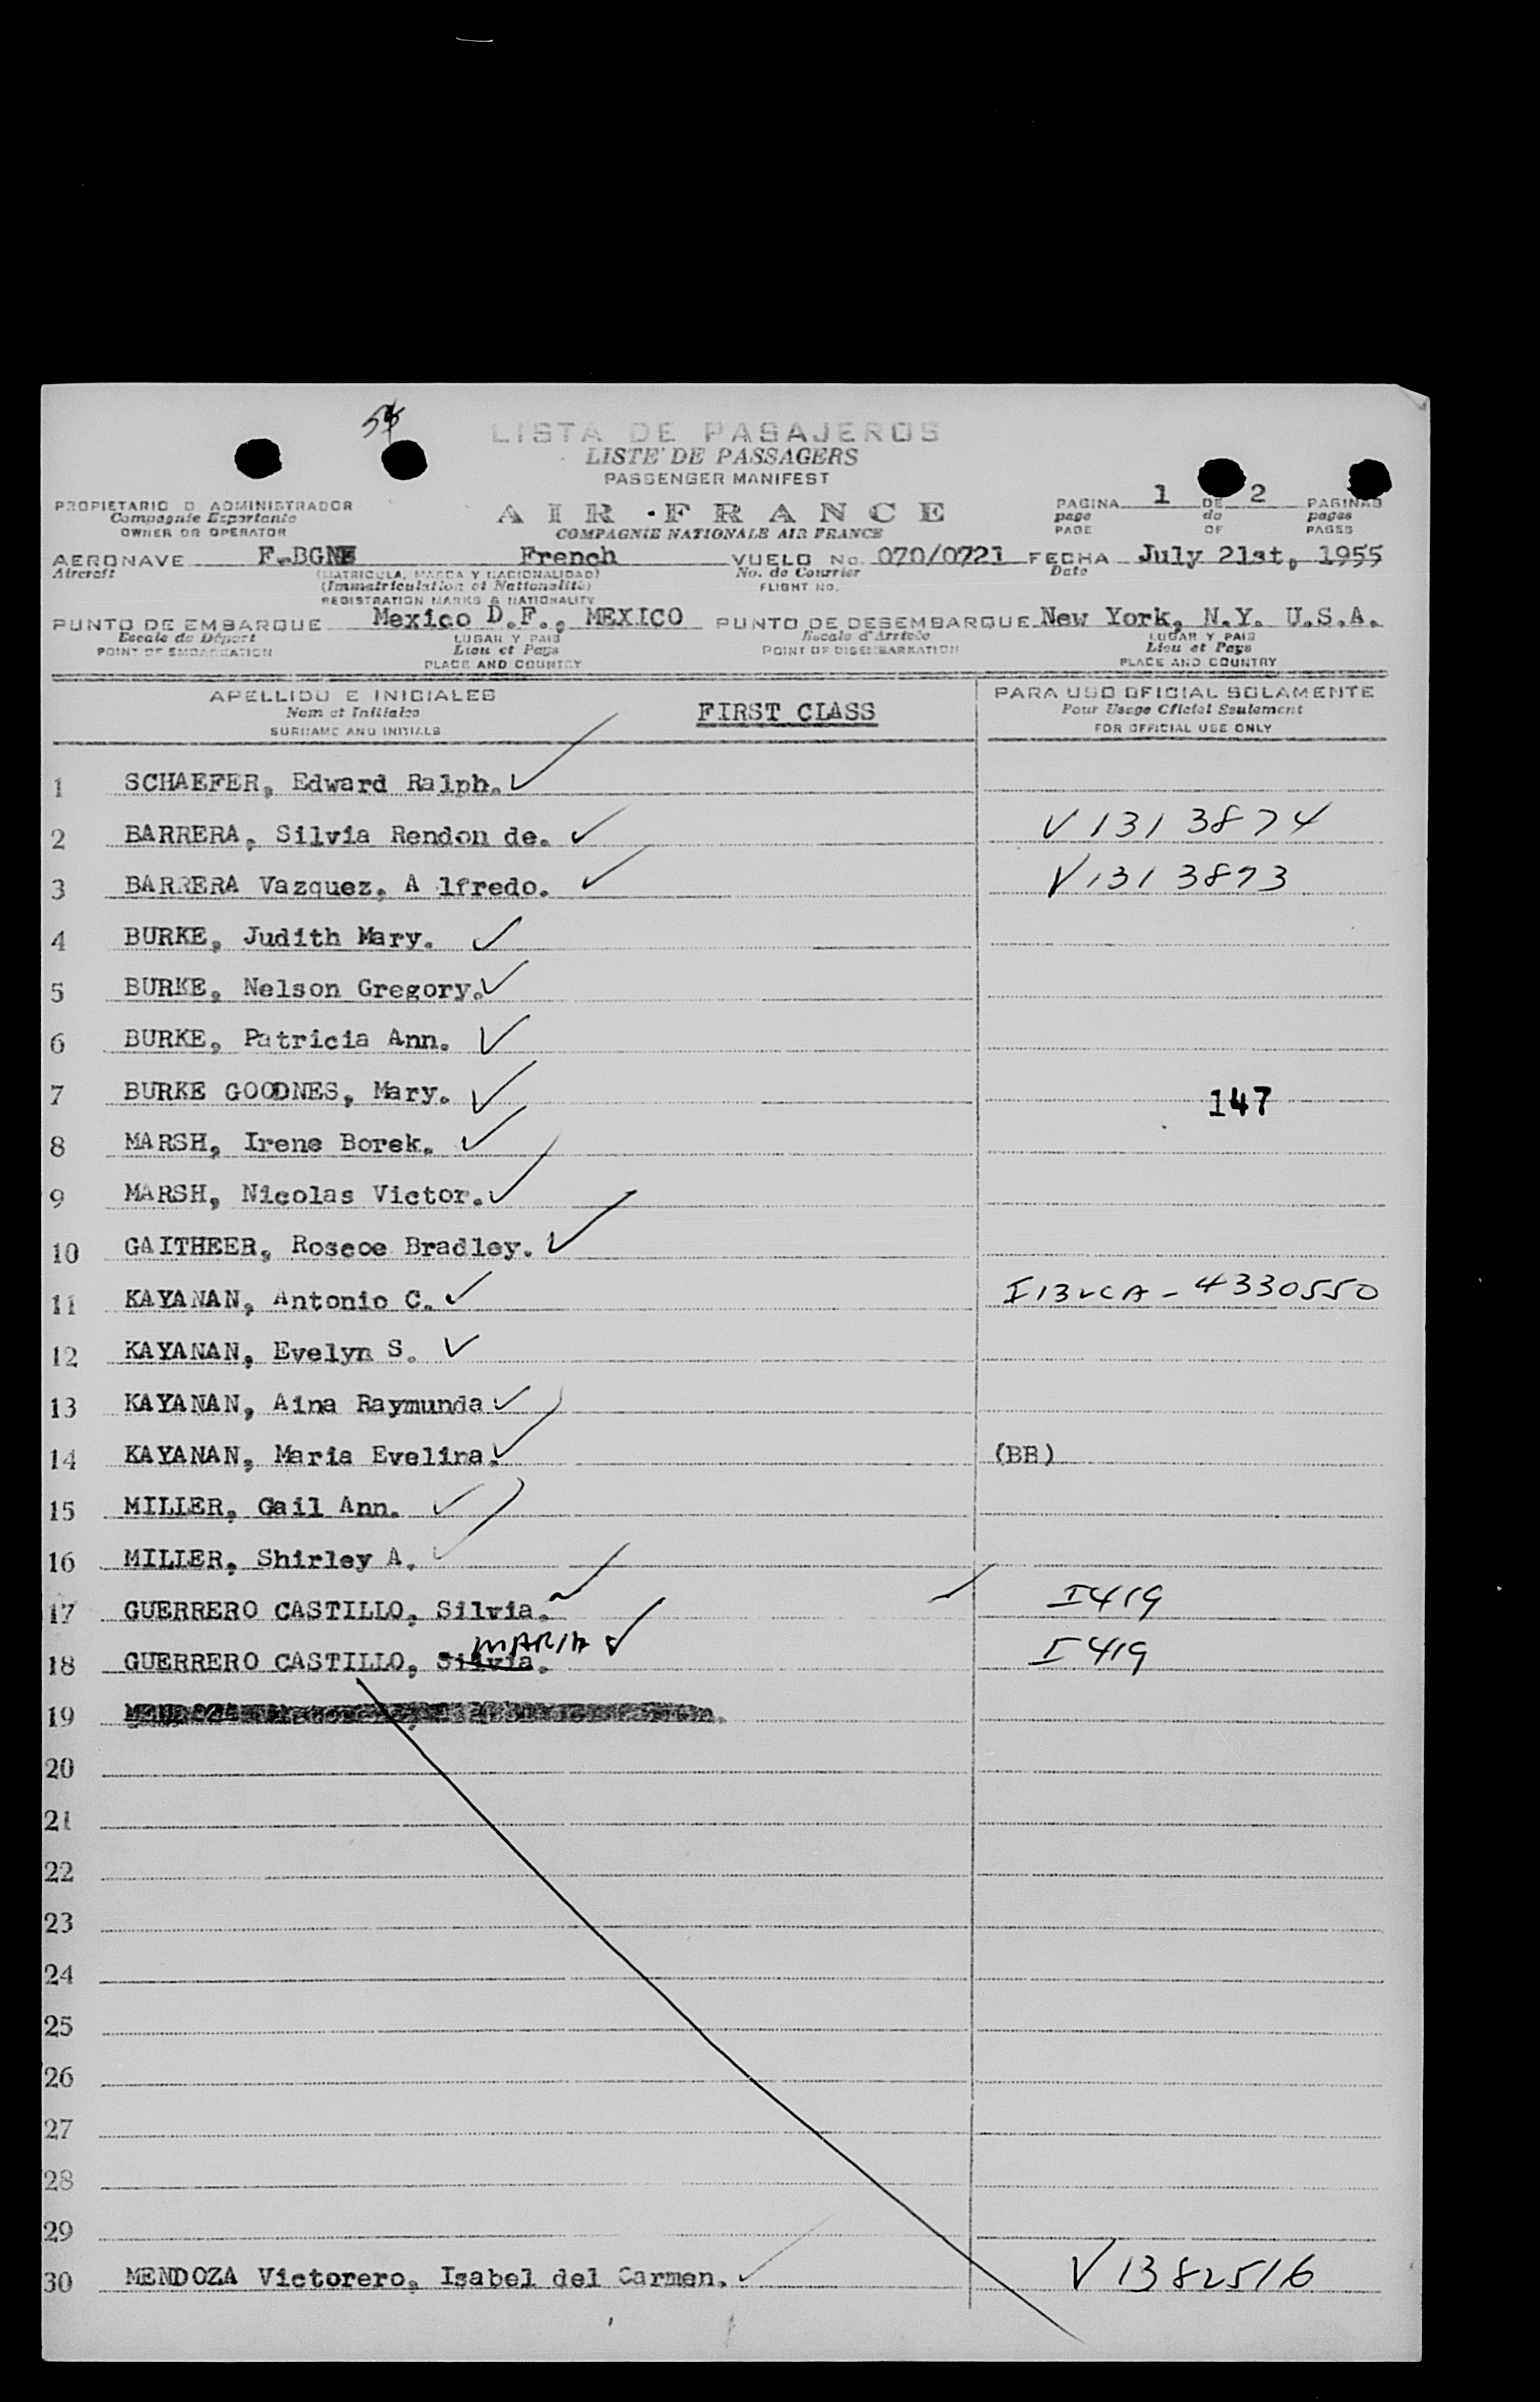 LISTA DE PASAJEROS
LISTE DE PASSAGERS
PASSENGER MANIFEST
PROPIETARIO O ADMINISTRADOR
Compagnie Exportante
OWNER OR OPERATOR
AIR FRANCE
COMPAGNIE NATIONALE AIR FRANCE
PAGINA 1 DE 2 PAGINAS
page de pages
PAGE OF PAGES
AERONAVE French VUELO No. 070/0721 FECHA July 21st, 1955
Aircraft (MATRICULA, MARCA Y NACIONALIDAD) No. de Courrier Date
(Immatriculation et Nationalité) FLIGHT NO.
REGISTRATION MARKS & NATIONALITY
PUNTO DE EMBARQUE Mexico D.F., MEXICO PUNTO DE DESEMBARQUE New York, N.Y. U.S.A.
Escale de Départ LUGAR Y PAIS Escale d'Arrivée LUGAR Y PAIS
POINT OF EMBARKATION Lieu et Pays POINT OF DISEMBARKATION Lieu et Pays
PLACE AND COUNTRY PLACE AND COUNTRY
APELLIDO E INICIALES FIRST CLASS PARA USO OFICIAL SOLAMENTE
Nom et Initiales Pour Usage Officiel Seulement
SURNAME AND INITIALS FOR OFFICIAL USE ONLY
1 SCHAEFER, Edward Ralph. ✓
2 BARRERA, Silvia Rendon de. ✓ V1313874
3 BARRERA Vazquez, A lfredo. ✓ V1313873
4 BURKE, Judith Mary. ✓
5 BURKE, Nelson Gregory. ✓
6 BURKE, Patricia Ann. ✓
7 BURKE GOODNES, Mary. ✓ 147
8 MARSH, Irene Borek. ✓
9 MARSH, Nicolas Victor. ✓
10 GAITHEER, Roscoe Bradley. ✓
11 KAYANAN, Antonio C. ✓ 4330550
12 KAYANAN, Evelyn S. ✓
13 KAYANAN, Aina Raymunda ✓
14 KAYANAN, Maria Evelina. ✓ (BB)
15 MILLER, Gail Ann. ✓
16 MILLER, Shirley A. ✓
17 GUERRERO CASTILLO, Silvia. ✓ I419
MARIA ✓
18 GUERRERO CASTILLO, Silvia. I419
19
20
21
22
23
24
25
26
27
28
29
30 MENDOZA Victorero, Isabel del Carmen. ✓ V1382516